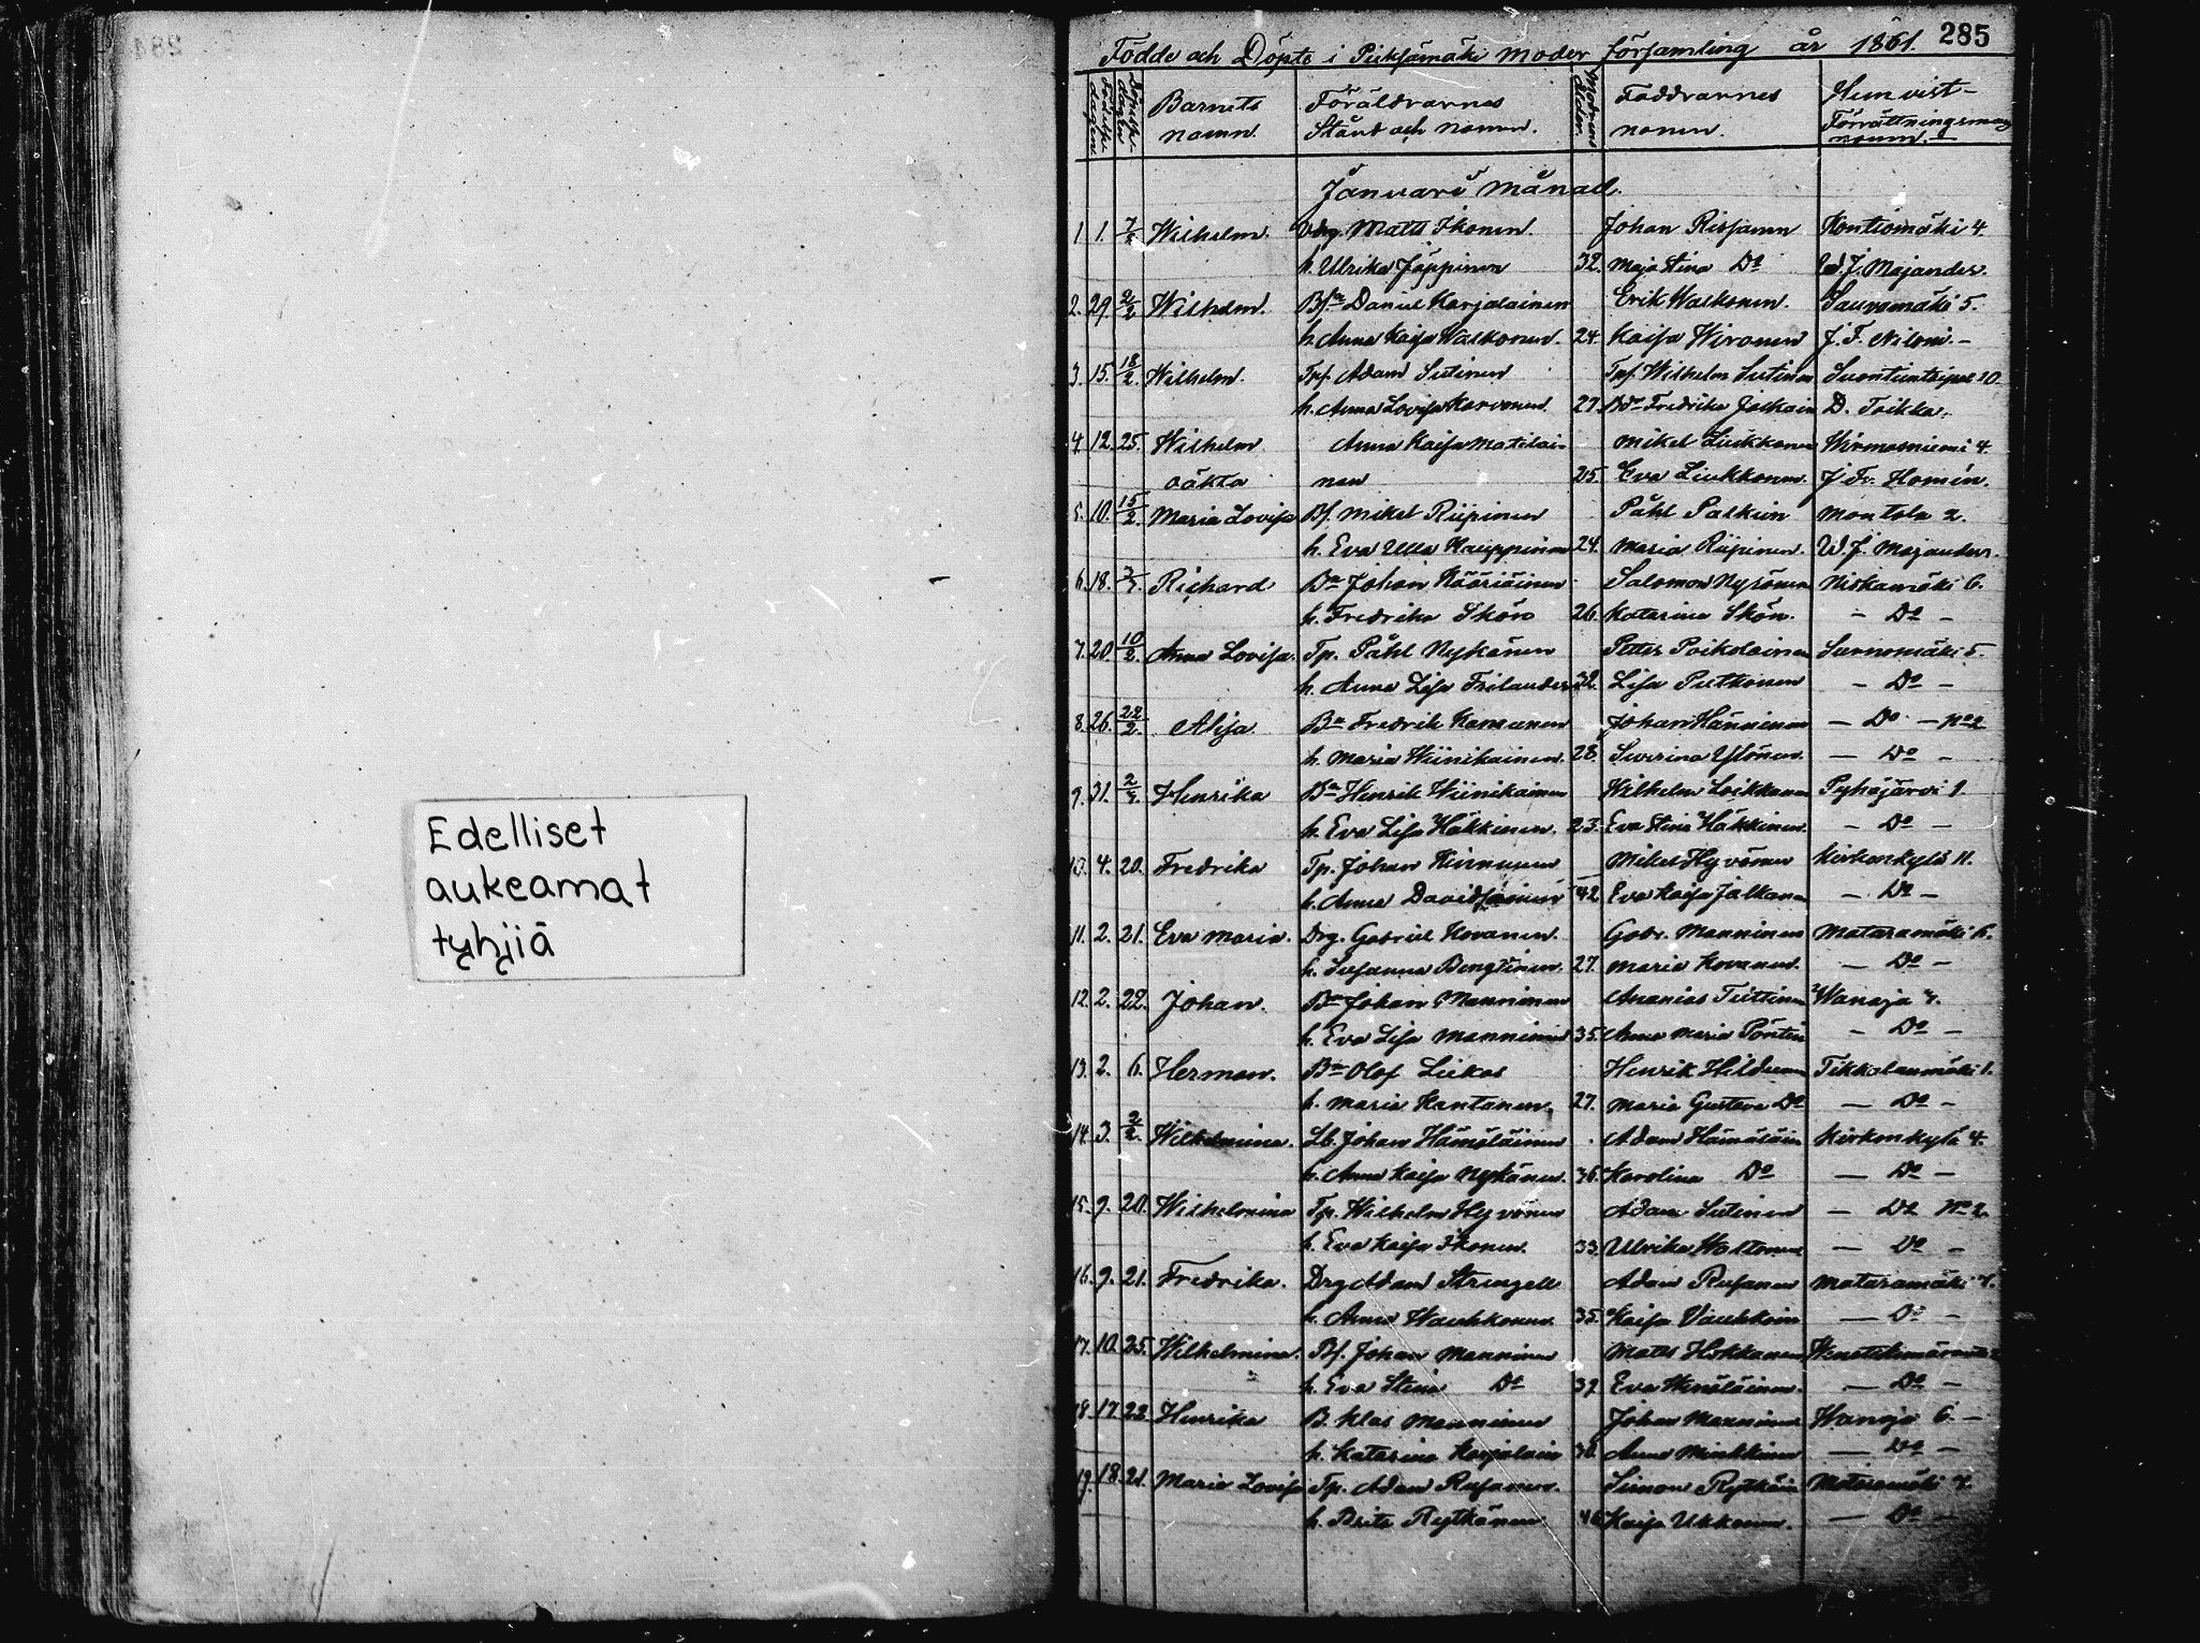 284
Edelliset
aukeamat
tyhjiä
285
Födde och Döpte i Pieksämäki Moder församling år 1861.
Födelse dagen. Döpelse dagen Barnets namn. Föräldrarnes Stånd och namn. Modrens ålder. Faddrarnes namn. Hemvist- Förrättningsmans namn.
Januarii Månad.
1 1. 7/2 Wilhelm. Drg. Matts Ikonen. Johan Risfanen Kontiomäki 4.
h. Ulrika Jäppinen 32. Maja Stina Do W. J. Majander.
2. 29. 2/2 Wilhelm. Bfn Daniel Karjalainen Erik Waskonen. 5.
h. Anna Kaisa Waskonen. 24. Kaisa Wironen J. F. Nilson. -
3. 15. 18/2. Wilhelm. Tpf. Adam Sutinen Tpf. Wilhelm Sutinen 10
h. Anna Lovisa Karvonen. 27. Fredrika D. Toikka.
4. 12. 25. Wilhelm Anna Kaisa Matilai- Mikel Liukkonen Wirmasniemi 4.
oäkta nen 25. Eva Liukkonen. J. Fr. Homén.
5. 10. 15/2. Maria Lovisa Bf. Mikel Riipinen Påhl Paskin Montola 2.
h. Eva Ulla Kauppinen 24. Maria Riipinen. W. J. Majander.
6. 18. Richard Bn Johan Kääriäinen Salomon Nyrönen Niskamäki 6.
h. Fredrika Skön 26. Katarina Skön. - Do -
7. 20. 10/2. Anna Lovisa. Tp. Påhl Nykänen Petter Poikolainen Surnomäki 5.
h. Anna Lisa Frilander 32. Lisa Putkonen - Do -
8. 26. 22/2. Alisa Bn Fredrik Johan Hänninen - Do - No 2
h. Maria Wiinikainen. 28. Severina Ylönen. - Do -
9. 31. Henrika Bn Henrik Wiinikainen Wilhelm Loikkanen Pyhäjärvi 1.
h. Eva Lisa Häkkinen. 23. Eva Stina Häkkinen. - Do -
10. 4. 20. Fredrika Tp. Johan Kinnunen Mikel Hyvönen Kirkonkylä 11.
h. Anna Davidsainen 42 Eva Kaisa Jalkanen - Do -
11. 2. 21. Eva Maria. Drg. Gabriel Kovanen. Gabr. Manninen Mataramäki 6.
h. Susanna Bengtinen. 27. Maria Kovanen. - Do -
12. 2. 22. Johan. Bn Johan Manninen Ananias Tiittinen Wanaja 4.
h. Eva Lisa Manninen 35. Anna Maria Pöntin - Do -
13. 2. 6. Herman. Bn Olof Liukas Henrik Hildunen Tikkalanmäki 1.
h. Maria Kantanen. 27. Maria Gustava Do - Do -
14. 3. 2/2. Wilhelmina. Lb. Johan Hämäläinen Adam Hämäläin Kirkonkylä 4.
h. Anna Kaisa Nykänen. 36. Karolina Do - Do -
15. 9. 20. Wilhelmina Tp. Wilhelm Hyvönen Adam Sutinen - Do No 2.
h. Eva Kaisa Ikonen. 33. Ulrika - Do -
16. 9. 21. Fredrika. Drg Adam Strengell Adam Rusanen Mataramäki 7.
h. Anna Wauhkonen 35. Kaisa - Do -
17. 10. 25. Wilhelmina. Bf. Johan Manninen Matts Hokkanen
h. Eva Stina Do 39 Eva Wenäläinen. - Do -
18. 17. 22. Henrika B. Klas Manninen Johan Manninen Wanaja 6. -
h. Katarina Karjalain 30. Anna Minkkinen - Do -
19. 18. 21. Maria Lovisa Tp. Adam Rusanen. Simon Rytkäin Mataramäki 4.
h. Brita Rytkönen Kaisa Ukkonen. - Do -